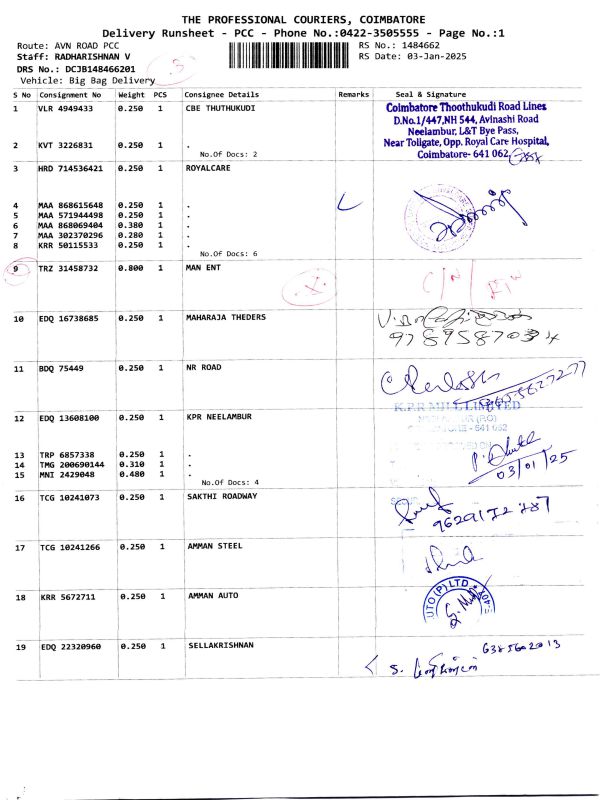 THE PROFESSIONAL COURIERS, COIMBATORE
Delivery Runsheet - PCC - Phone No.:0422-3505555 - Page No.:1
Route: AVN ROAD PCC
RS No.: 1484662
Staff: RADHARISHNAN V
RS Date: 03-Jan-2025
DRS No.: DCJB148466201
Vehicle: Big Bag Delivery
S No Consignment No Weight PCS Consignee Details Remarks Seal & Signature
1 VLR 4949433 0.250 1 CBE THUTHUKUDI
Coimbatore Thoothukudi Road Lines
D.No.1/447,NH 544, Avinashi Road
Neelambur, L&T Bye Pass,
Near Tollgate, Opp. Royal Care Hospital,
Coimbatore- 641 062
2 KVT 3226831 0.250 1 .
No.Of Docs: 2
3 HRD 714536421 0.250 1 ROYALCARE
4 MAA 868615648 0.250 1 .
5 MAA 571944498 0.250 1 .
6 MAA 868069404 0.380 1 .
7 MAA 302370296 0.280 1 .
8 KRR 50115533 0.250 1 .
No.Of Docs: 6
9 TRZ 31458732 0.800 1 MAN ENT
10 EDQ 16738685 0.250 1 MAHARAJA THEDERS
9789587034
11 BDQ 75449 0.250 1 NR ROAD
K.P.R MILL LIMITED
12 EDQ 13608100 0.250 1 KPR NEELAMBUR
- 641 062
13 TRP 6857338 0.250 1 .
14 TMG 200690144 0.310 1 .
15 MNI 2429048 0.480 1 .
03/01/25
No.Of Docs: 4
16 TCG 10241073 0.250 1 SAKTHI ROADWAY
17 TCG 10241266 0.250 1 AMMAN STEEL
18 KRR 5672711 0.250 1 AMMAN AUTO
UTO (P) LTD
19 EDQ 22320960 0.250 1 SELLAKRISHNAN
6385602013